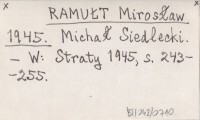 x x
RAMUŁT Mirosław
1945. Michał Siedlecki.
- W: Straty 1945, s. 243-
-255.